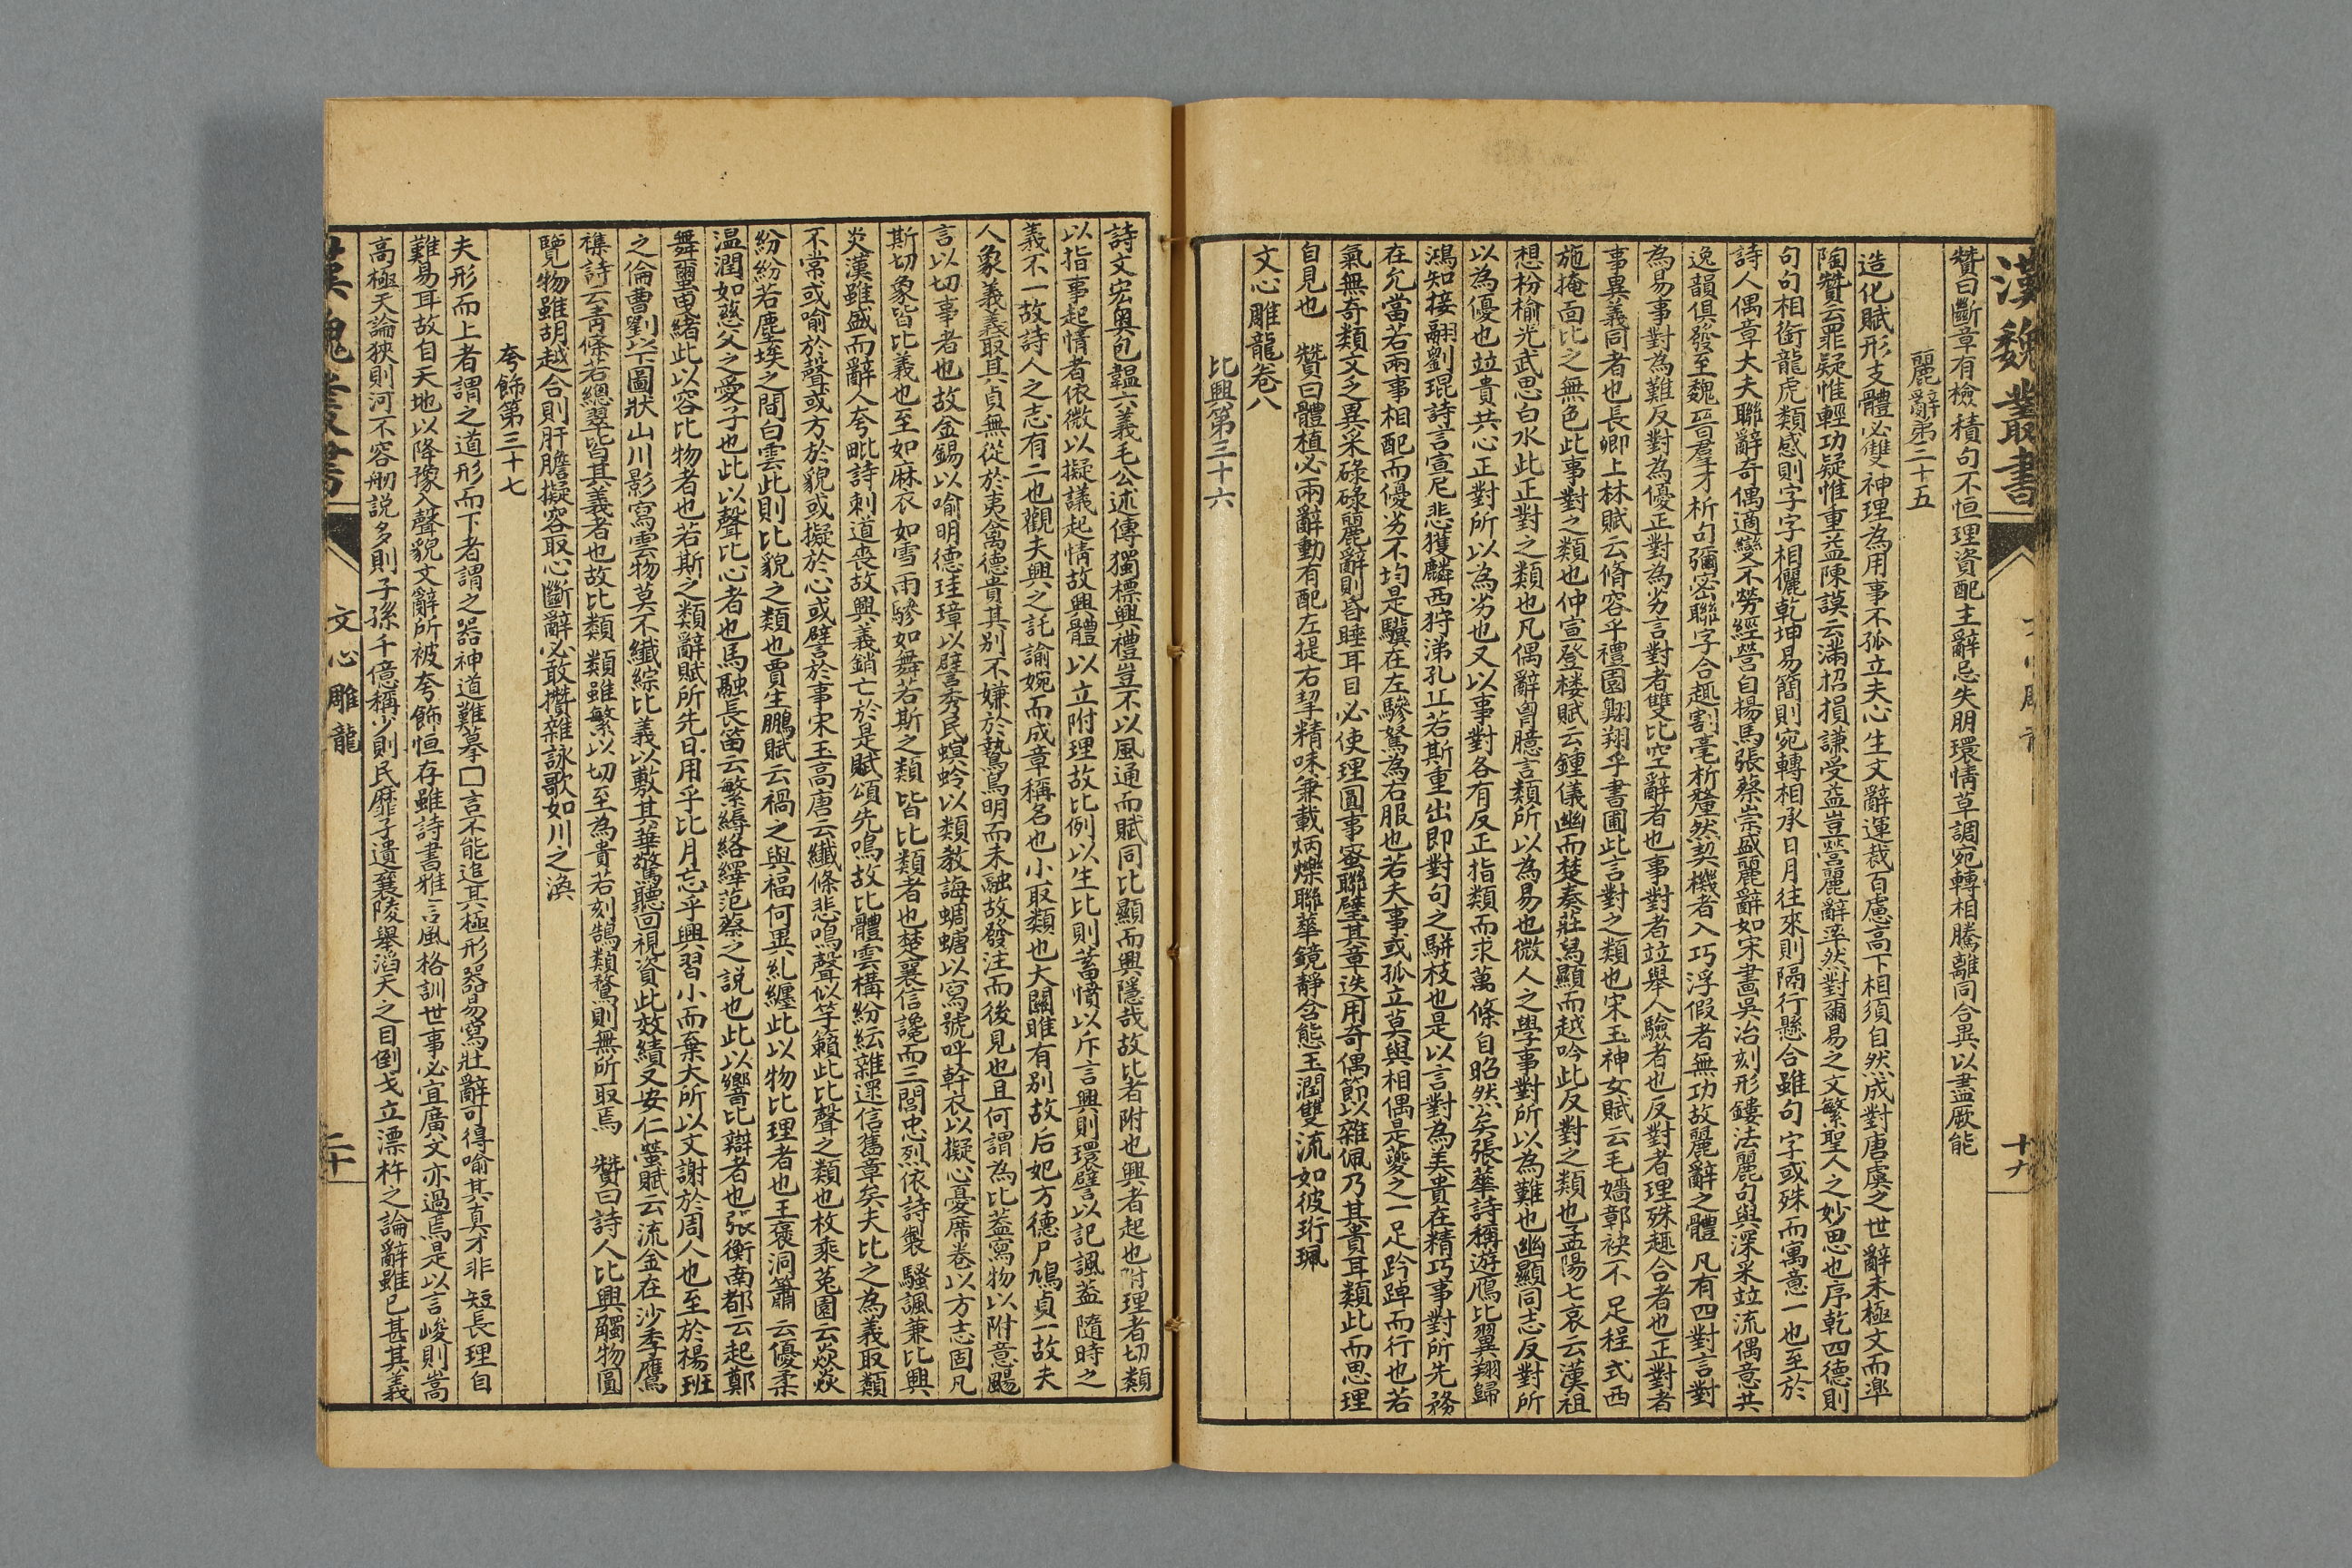 漢魏叢書
十九
贊曰斷章有檢積句不恒理資配主辭忌失朋環情草調宛轉相騰離同合異以盡厥能
麗辭第三十五
造化賦形支體必雙神理為用事不孤立夫心生文辭運裁百慮高下相須自然成對唐虞之世辭未極文而臯
陶贊云罪疑惟輕功疑惟重益陳謨云滿招損謙受益豈營麗辭率然對爾易之文繫聖人之妙思也序乾四德則
句句相銜龍虎類感則字字相儷乾坤易簡則宛轉相承日月往來則隔行懸合雖句字或殊而寓意一也至於
詩人偶章大夫聯辭奇偶適變不勞經營自楊馬張蔡崇盛麗辭如宋畫吳冶刻形鏤法麗句與深采竝流偶意共
逸韻俱發至魏晉羣才析句彌密聯字合趣割毫析釐然契機者入巧浮假者無功故麗辭之體凡有四對言對
為易事對為難反對為優正對為劣言對者雙比空辭者也事對者竝舉人驗者也反對者理殊趣合者也正對者
事異義同者也長卿上林賦云脩容乎禮園翺翔乎書圃此言對之類也宋玉神女賦云毛嬙鄣袂不足程式西
施掩面比之無色此事對之類也仲宣登楼賦云鍾儀幽而楚奏莊舄顯而越吟此反對之類也孟陽七哀云漢祖
想枌榆光武思白水此正對之類也凡偶辭胷臆言類所以為易也微人之學事對所以為難也幽顯同志反對所
以為優也竝貴共心正對所以為劣也又以事對各有反正指類而求萬條自昭然矣張華詩稱遊鴈比翼翔歸
鴻知接翮劉琨詩言宣尼悲獲麟西狩涕孔丘若斯重出即對句之駢枝也是以言對為美貴在精巧事對所先務
在允當若兩事相配而優劣不均是驥在左驂駑為右服也若夫事或孤立莫與相偶是夔之一足趻踔而行也若
氣無奇類文乏異采碌碌麗辭則昏睡耳目必使理圓事密聯璧其章迭用奇偶節以雜佩乃其貴耳類此而思理
自見也　贊曰體植必兩辭動有配左提右挈精味兼載炳爍聯華鏡靜含態玉潤雙流如彼珩珮
文心雕龍卷八
比興第三十六
詩文宏奥包韞六義毛公述傳獨標興禮豈不以風通而賦同比顯而興隱哉故比者附也興者起也附理者切類
以指事起情者依微以擬議起情故興體以立附理故比例以生比則蓄憤以斥言興則環譬以記諷蓋隨時之
義不一故詩人之志有二也觀夫興之託諭婉而成章稱名也小取類也大關雎有別故后妃方德尸鳩貞一故夫
人象義義取其貞無從於夷禽德貴其别不嫌於鷙鳥明而未融故發注而後見也且何謂為比蓋寫物以附意颺
言以切事者也故金錫以喻明德珪璋以譬秀民螟蛉以類教誨蜩螗以寫號呼澣衣以擬心憂席卷以方志固凡
斯切象皆比義也至如麻衣如雪兩驂如舞若斯之類皆比類者也楚襄信讒而三閭忠烈依詩製騷諷兼比興
炎漢雖盛而辭人夸毗詩刺道喪故興義銷亡於是賦頌先鳴故比體雲構紛紜雜遝信舊章矣夫比之為義取類
不常或喻於聲或方於貌或擬於心或譬於事宋玉高唐云纖條悲鳴聲似竽籟此比聲之類也枚乘菟園云焱焱
紛紛若塵埃之間白雲此則比貌之類也賈生鵩賦云禍之與福何異糺纆此以物比理者也王褒洞簫云優柔
温潤如慈父之愛子也此以聲比心者也馬融長笛云繁縟絡繹范蔡之說也此以響比辯者也張衡南都云起鄭
舞蠒曳緒此以容比物者也若斯之類辭賦所先日用乎比月忘乎興習小而棄大所以文謝於周人也至於楊班
之倫曹劉以下圖狀山川影寫雲物莫不纖綜比義以敷其華驚聽回視資此效績又安仁螢賦云流金在沙季鷹
襍詩云青條若總翠皆其義者也故比類類雖繁以切至為貴若刻鵠類鶩則無所取焉　贊曰詩人比興觸物圓
覽物雖胡越合則肝膽擬容取心斷辭必敢攢雜詠歌如川之渙
夸飾第三十七
夫形而上者謂之道形而下者謂之器神道難摹□言不能追其極形器易寫壯辭可得喻其真才非短長理自
難易耳故自天地以降豫入聲貌文辭所被夸飾恒存雖詩書雅言風格訓世事必宜廣文亦過焉是以言峻則嵩
高極天論狹則河不容舠説多則子孫千億稱少則民靡孑遺襄陵舉滔天之目倒戈立漂杵之論辭雖已甚其義
漢魏叢書
文心雕龍
二十